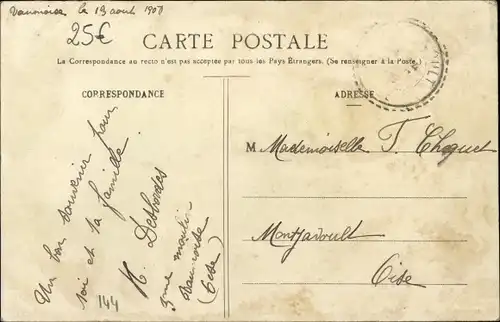 Vaumoise le 19 aout 1907
25€
CARTE POSTALE
La Correspondance au recto n'est pas acceptée par tous les Pays Étrangers. (Se renseigner à la Poste.)
CORRESPONDANCE
ADRESSE
Un bon souvenir pour
toi et ta famille
Desbordes
moulin
Vaumoise
(Oise)
144
M. Mademoiselle T. Choquet
Oise